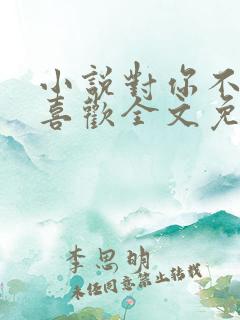 小說對你不
喜歡全文免
李思明
未经同意禁止转载